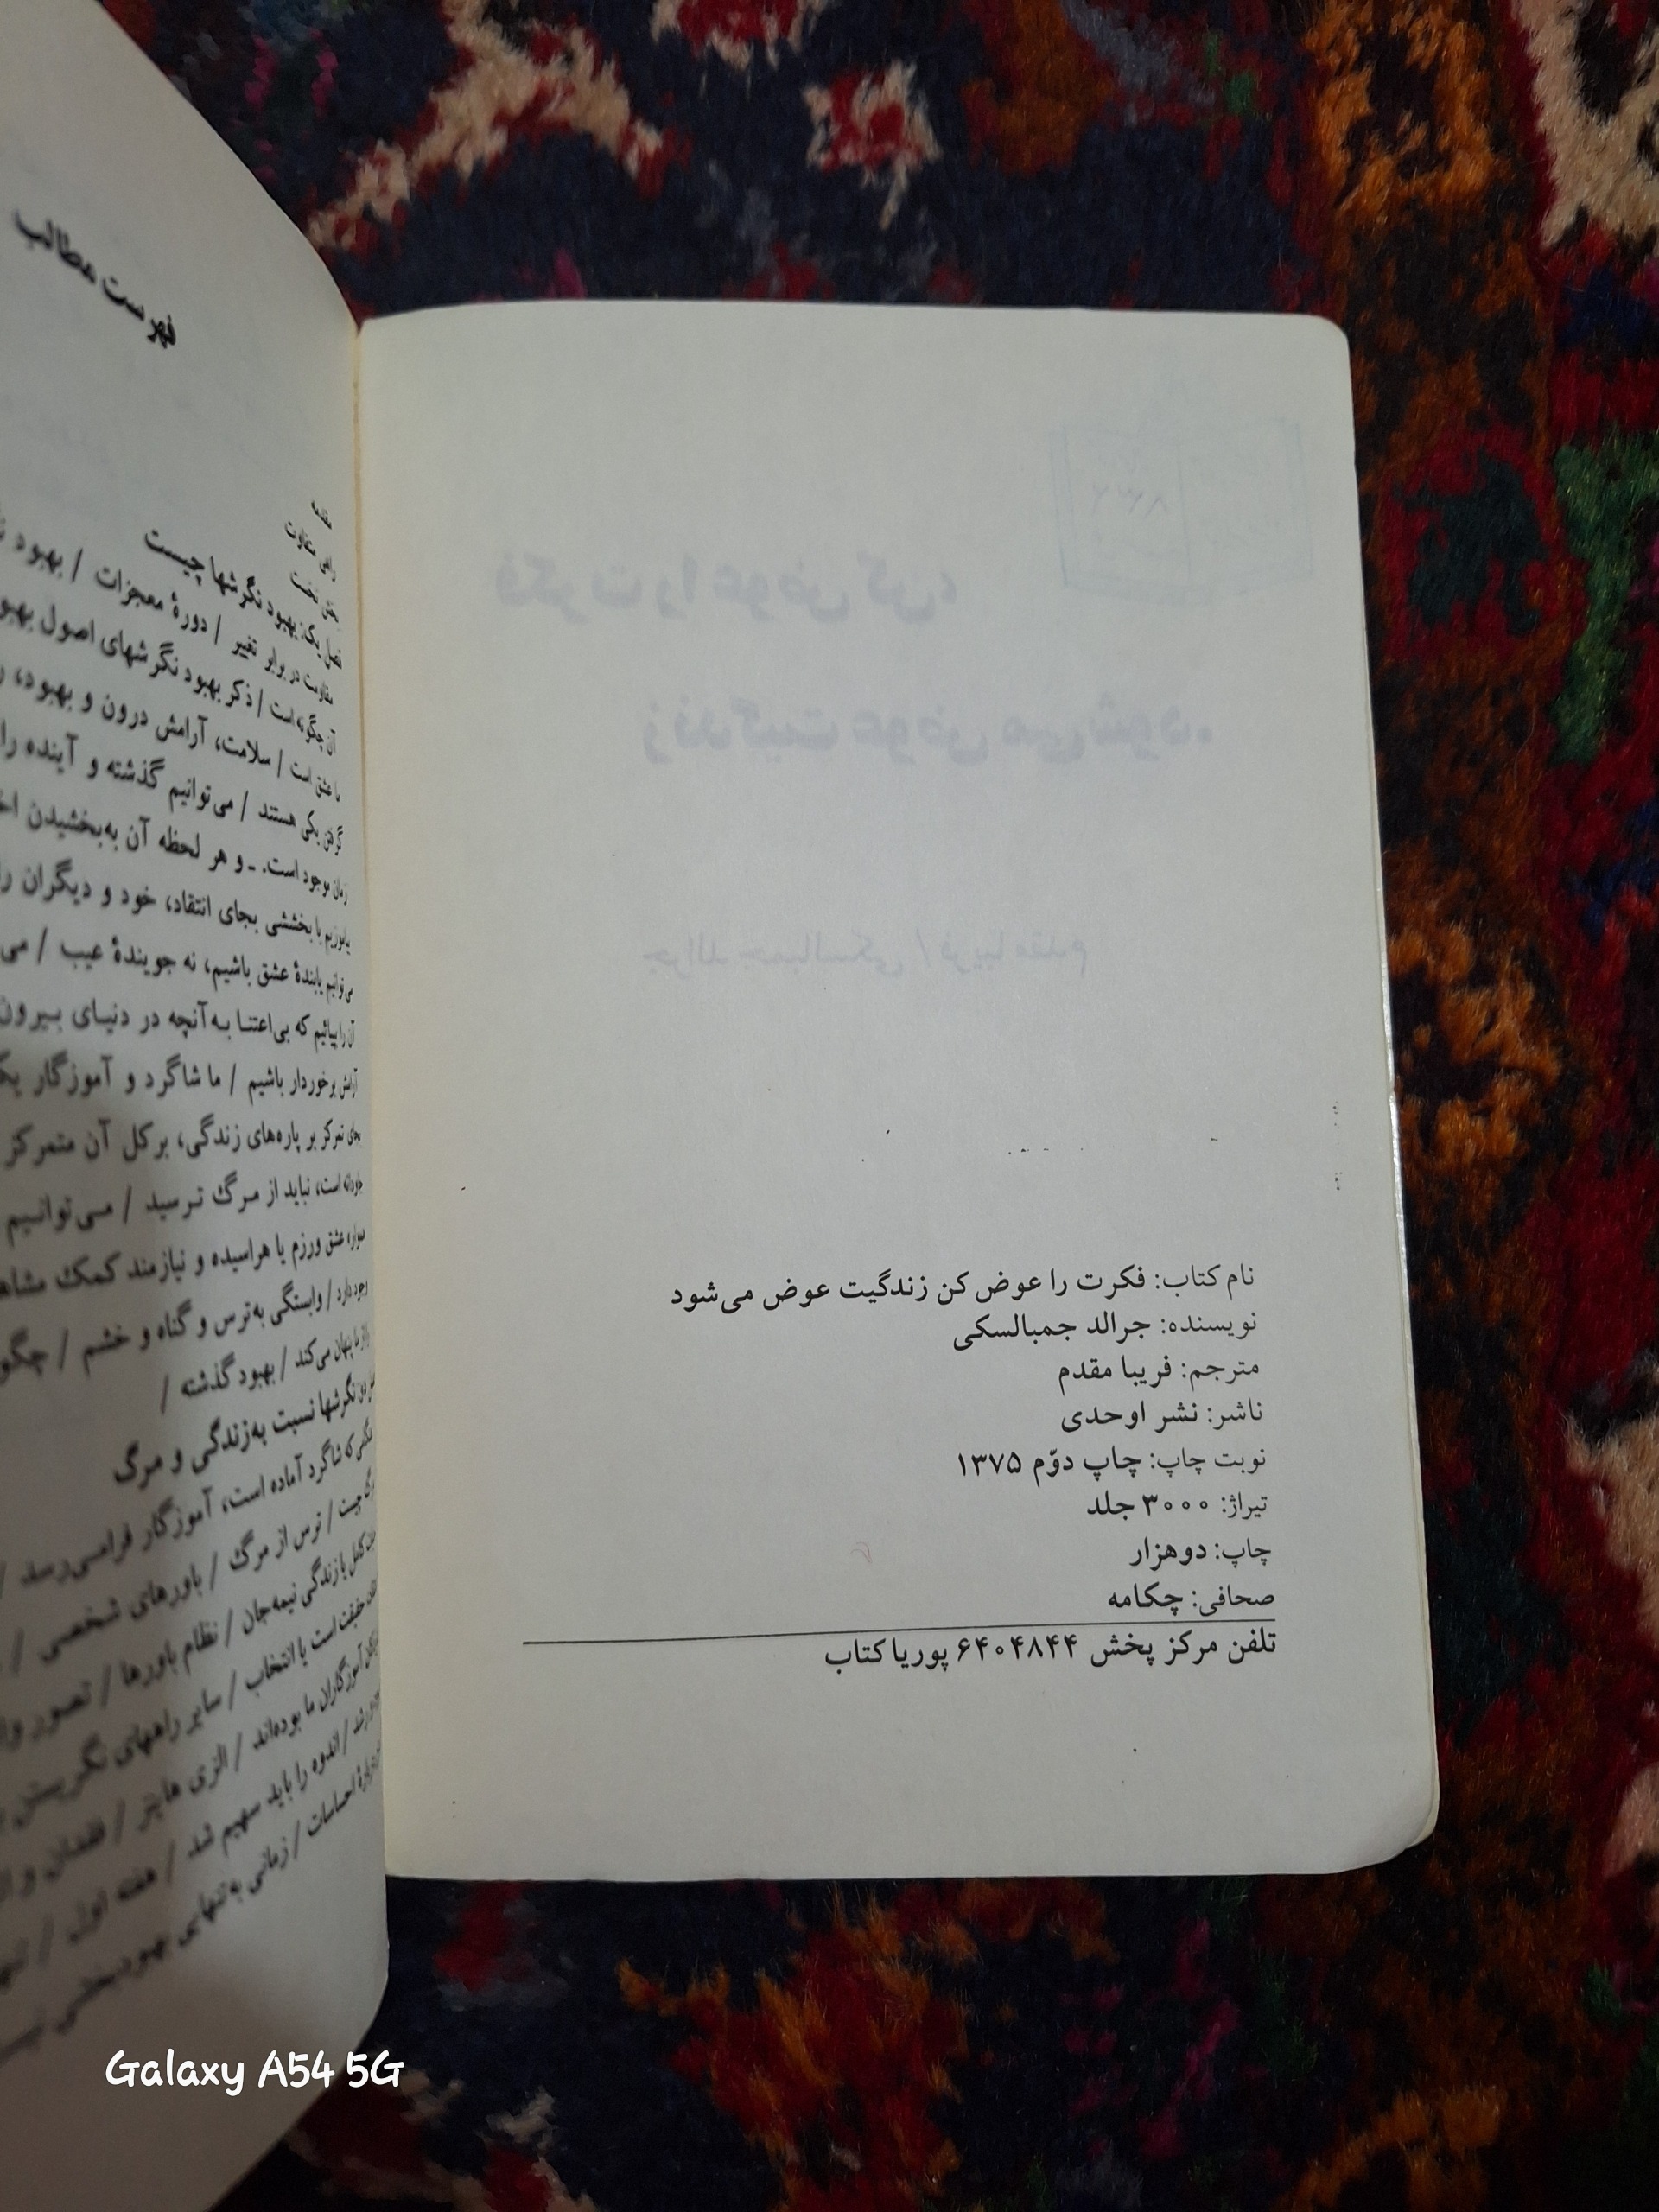 نام کتاب: فکرت را عوض کن زندگیت عوض می‌شود
نویسنده: جرالد جمبالسکی
مترجم: فریبا مقدم
ناشر: نشر اوحدی
نوبت چاپ: چاپ دوّم ۱۳۷۵
تیراژ: ۳۰۰۰ جلد
چاپ: دوهزار
صحافی: چکامه
تلفن مرکز پخش ۶۴۰۴۸۴۴ پوریا کتاب
فهرست مطالب
مقدمه
بهبود نگرشها چیست
مقاومت در برابر تغییر / دورهٔ معجزات / بهبود
آن چگونه است / ذکر بهبود نگرشهای اصول
ما عشق است / سلامت، آرامش درون و بهبود،
گرفتن یکی هستند / می‌توانیم گذشته و آینده را
زمان موجود است. ـ و هر لحظه آن به‌بخشیدن
بیاموزیم با بخششی بجای انتقاد، خود و دیگران را
می‌توانیم یابندهٔ عشق باشیم، نه جویندهٔ عیب /
آن را بیابیم که بی‌اعتنا به‌آنچه در دنیای بیرون
آرامش برخوردار باشیم / ما شاگرد و آموزگار
بجای تمرکز بر پاره‌های زندگی، برکل آن متمرکز
جاودانه است، نباید از مرگ ترسید / می‌توانیم
عشق ورزم یا هراسیده و نیازمند کمک
وجود دارد / وابستگی به‌ترس و گناه و خشم /
را از ما پنهان می‌کند / بهبود گذشته /
نگرشها نسبت به‌زندگی و مرگ
که شاگرد آماده است، آموزگار فرامی‌رسد /
چیست / ترس از مرگ / باورهای شخصی /
کامل یا زندگی نیمه‌جان / نظام باورها / تصور
حقیقت است یا انتخاب / سایر راههای نگریستن
آموزگاران ما بوده‌اند / الزی هاینز / فقدان و
رشد / اندوه را باید سهیم شد / هفته اول /
احساسات / زمانی به‌تنهایی
Galaxy A54 5G